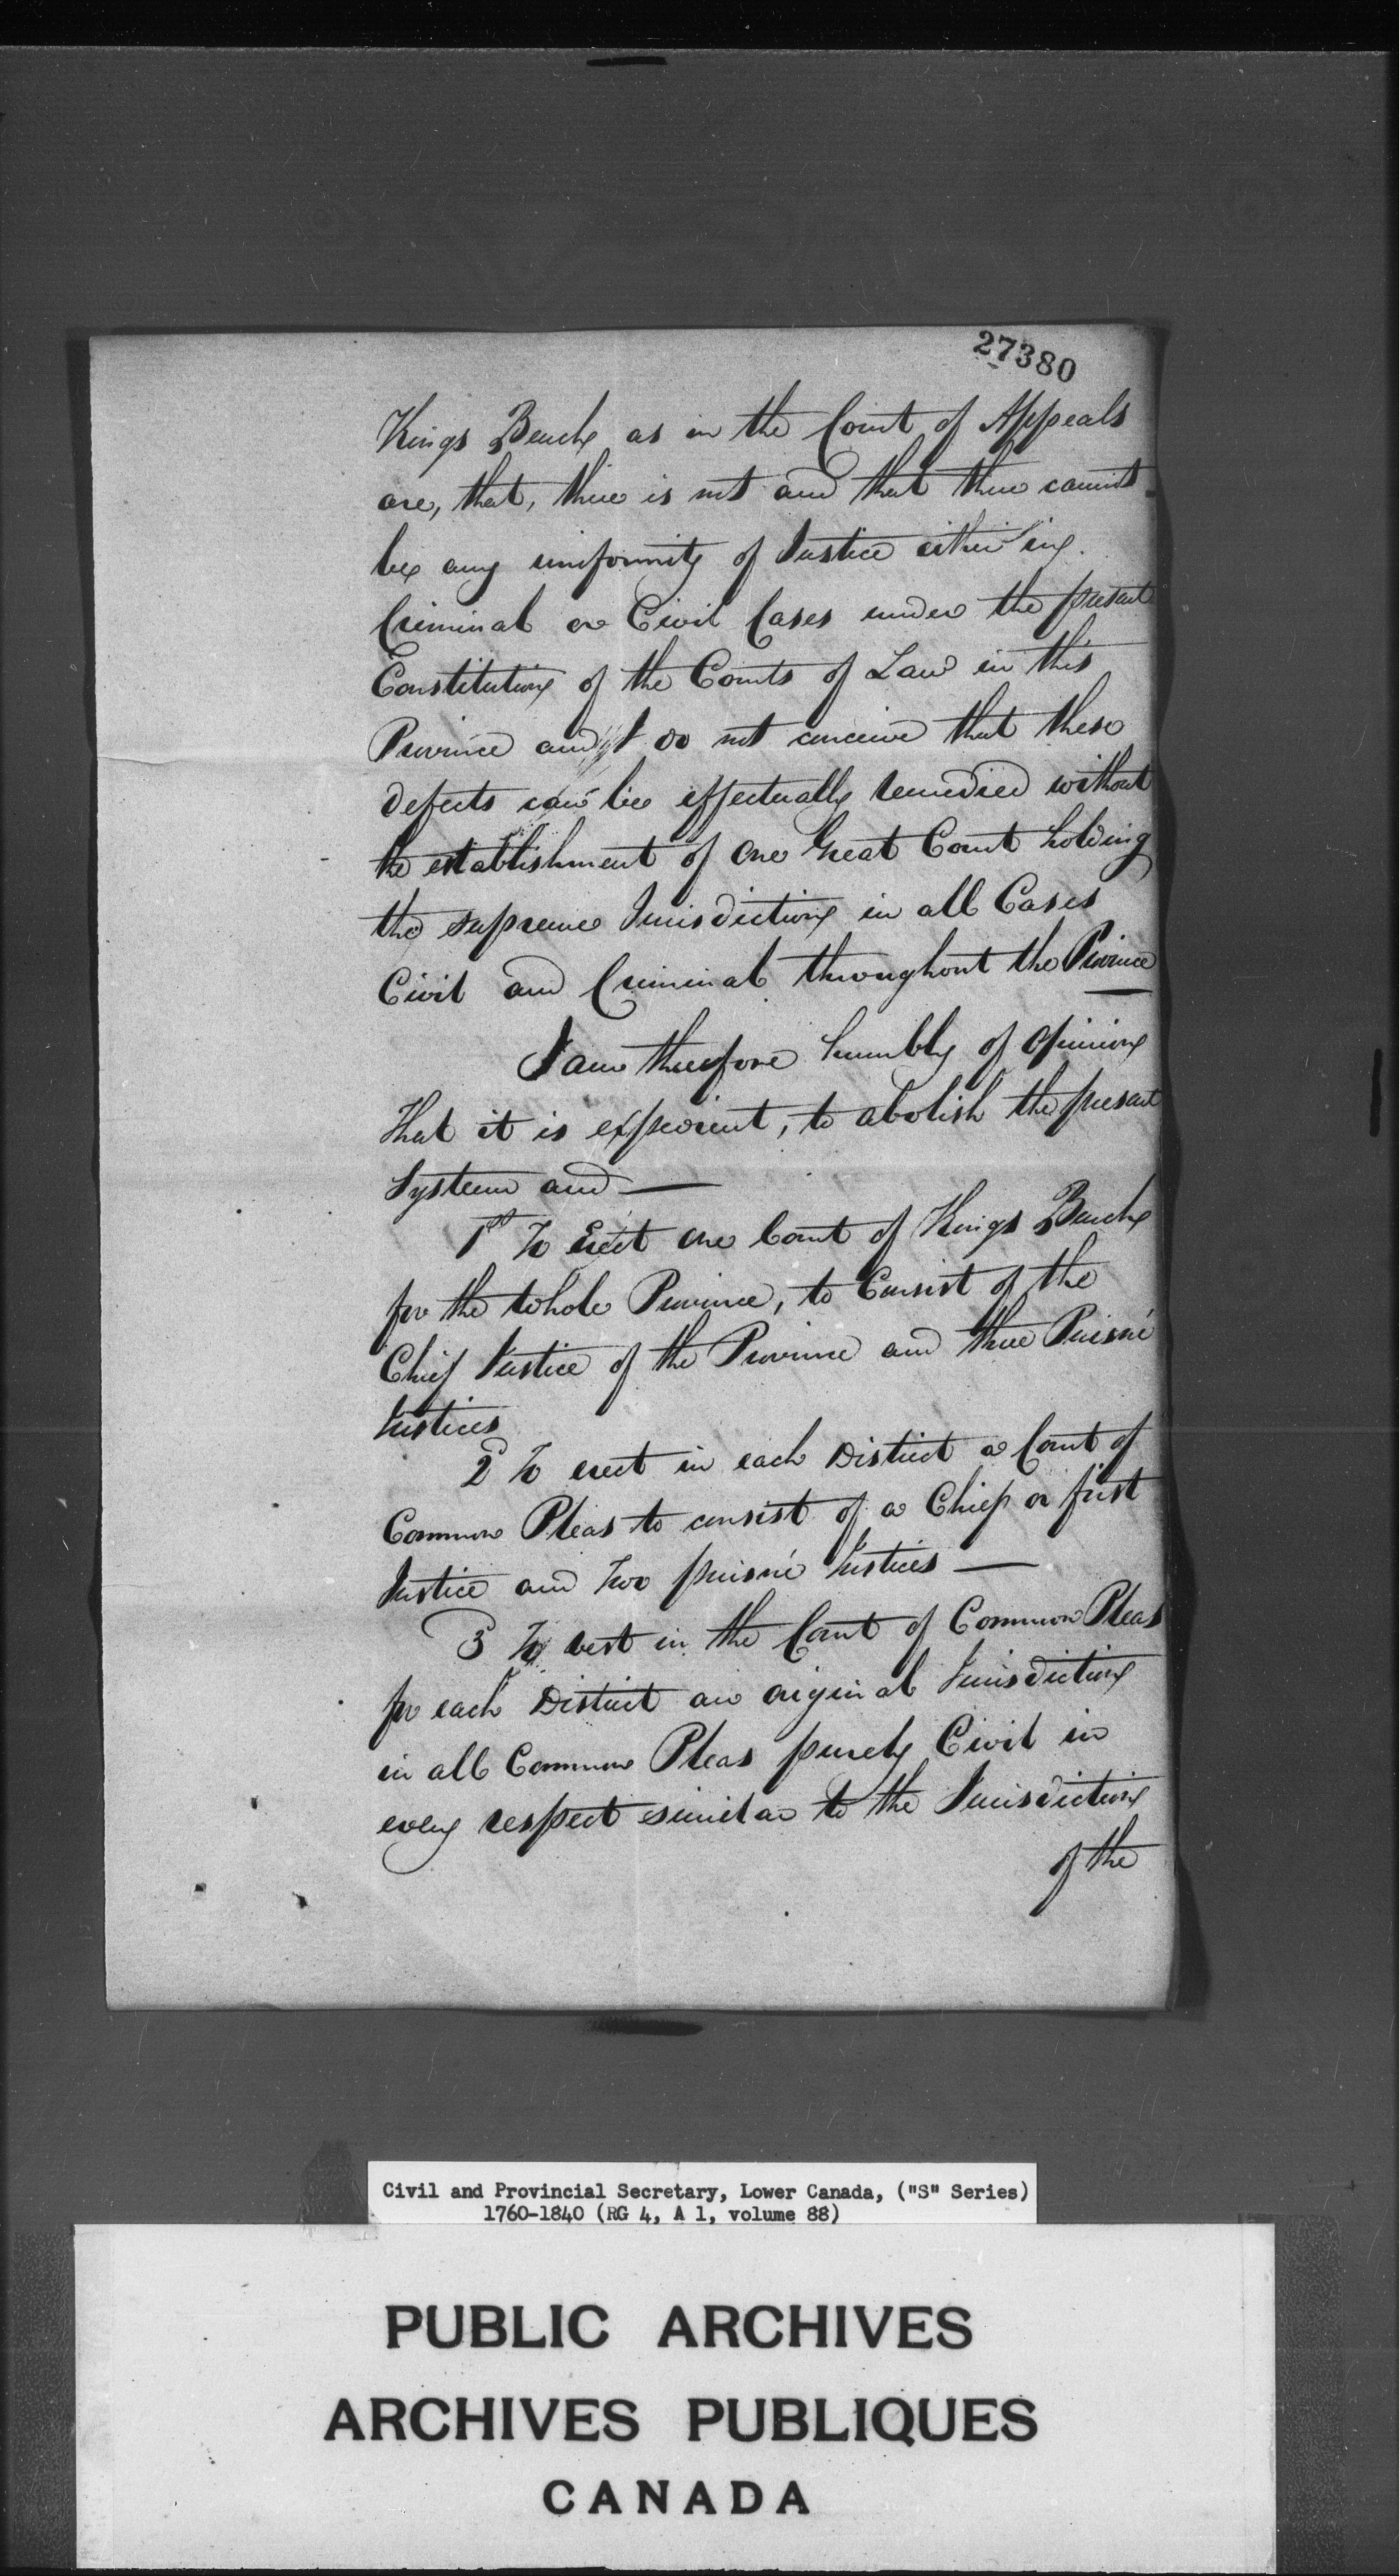 27380
Kings Bench as in the Court of Appeals
are, that, there is not and that there cannot
be any uniformity of Justice either in
Criminal or Civil Cases under the present
Constitution of the Courts of Law in this
Province and I do not conceive that these
defects can be effectually remedied without
the establishment of One Great Court holding
the supreme Jurisdiction in all Cases
Civil and Criminal throughout the Province
I am therefore humbly of Opinion
That it is expedient, to abolish the present
System and —
1st To Erect One Court of Kings Bench
for the whole Province, to Consist of the
Chief Justice of the Province and three Puisné
Justices
2d To erect in each District a Court of
Common Pleas to consist of a Chief or first
Justice and two puisné Justices —
3 To vest in the Court of Common Pleas
for each District an original Jurisdiction
in all Common Pleas purely Civil in
every respect similar to the Jurisdiction
of the
Civil and Provincial Secretary, Lower Canada, ("S" Series)
1760-1840 (RG 4, A 1, volume 88)
PUBLIC ARCHIVES
ARCHIVES PUBLIQUES
CANADA